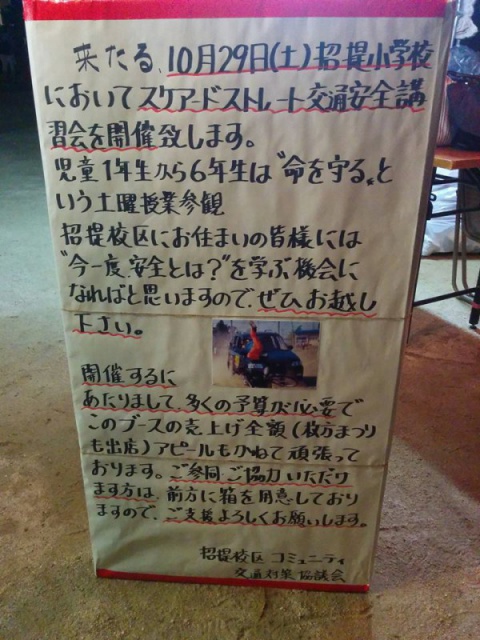 来たる、10月29日(土)招提小学校
においてスケアードストレート交通安全講
習会を開催致します。
児童1年生から6年生は“命を守る„と
いう土曜授業参観
招提校区にお住まいの皆様には
“今一度、安全とは?”を学ぶ機会に
なればと思いますので、ぜひお越し
下さい。
開催するに
あたりまして、多くの予算が必要で
このブースの売上げ全額(枚方まつり
も出店)アピールもかねて頑張って
おります。ご参同ご協力いただけ
ます方は、前方に箱を用意しており
ますので、ご支援よろしくお願いします。
招提校区 コミュニティ
交通対策協議会